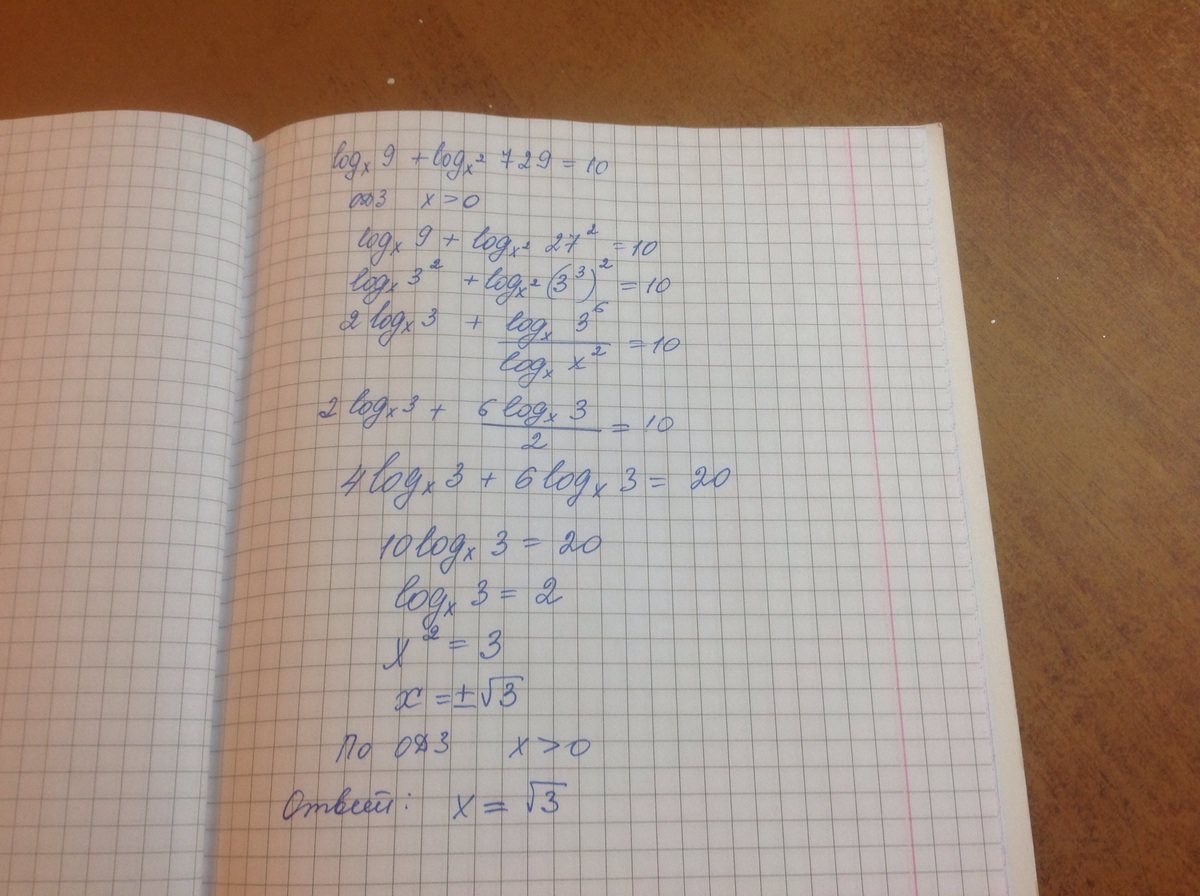 logₓ 9 + logₓ² 729 = 10
ОДЗ x > 0
logₓ 9 + logₓ² 27² = 10
logₓ 3² + logₓ² (3³)² = 10
2 logₓ 3 + logₓ 3⁶ / logₓ x² = 10
2 logₓ 3 + 6 logₓ 3 / 2 = 10
4 logₓ 3 + 6 logₓ 3 = 20
10 logₓ 3 = 20
logₓ 3 = 2
x² = 3
x = ±√3
По ОДЗ x > 0
Ответ: x = √3